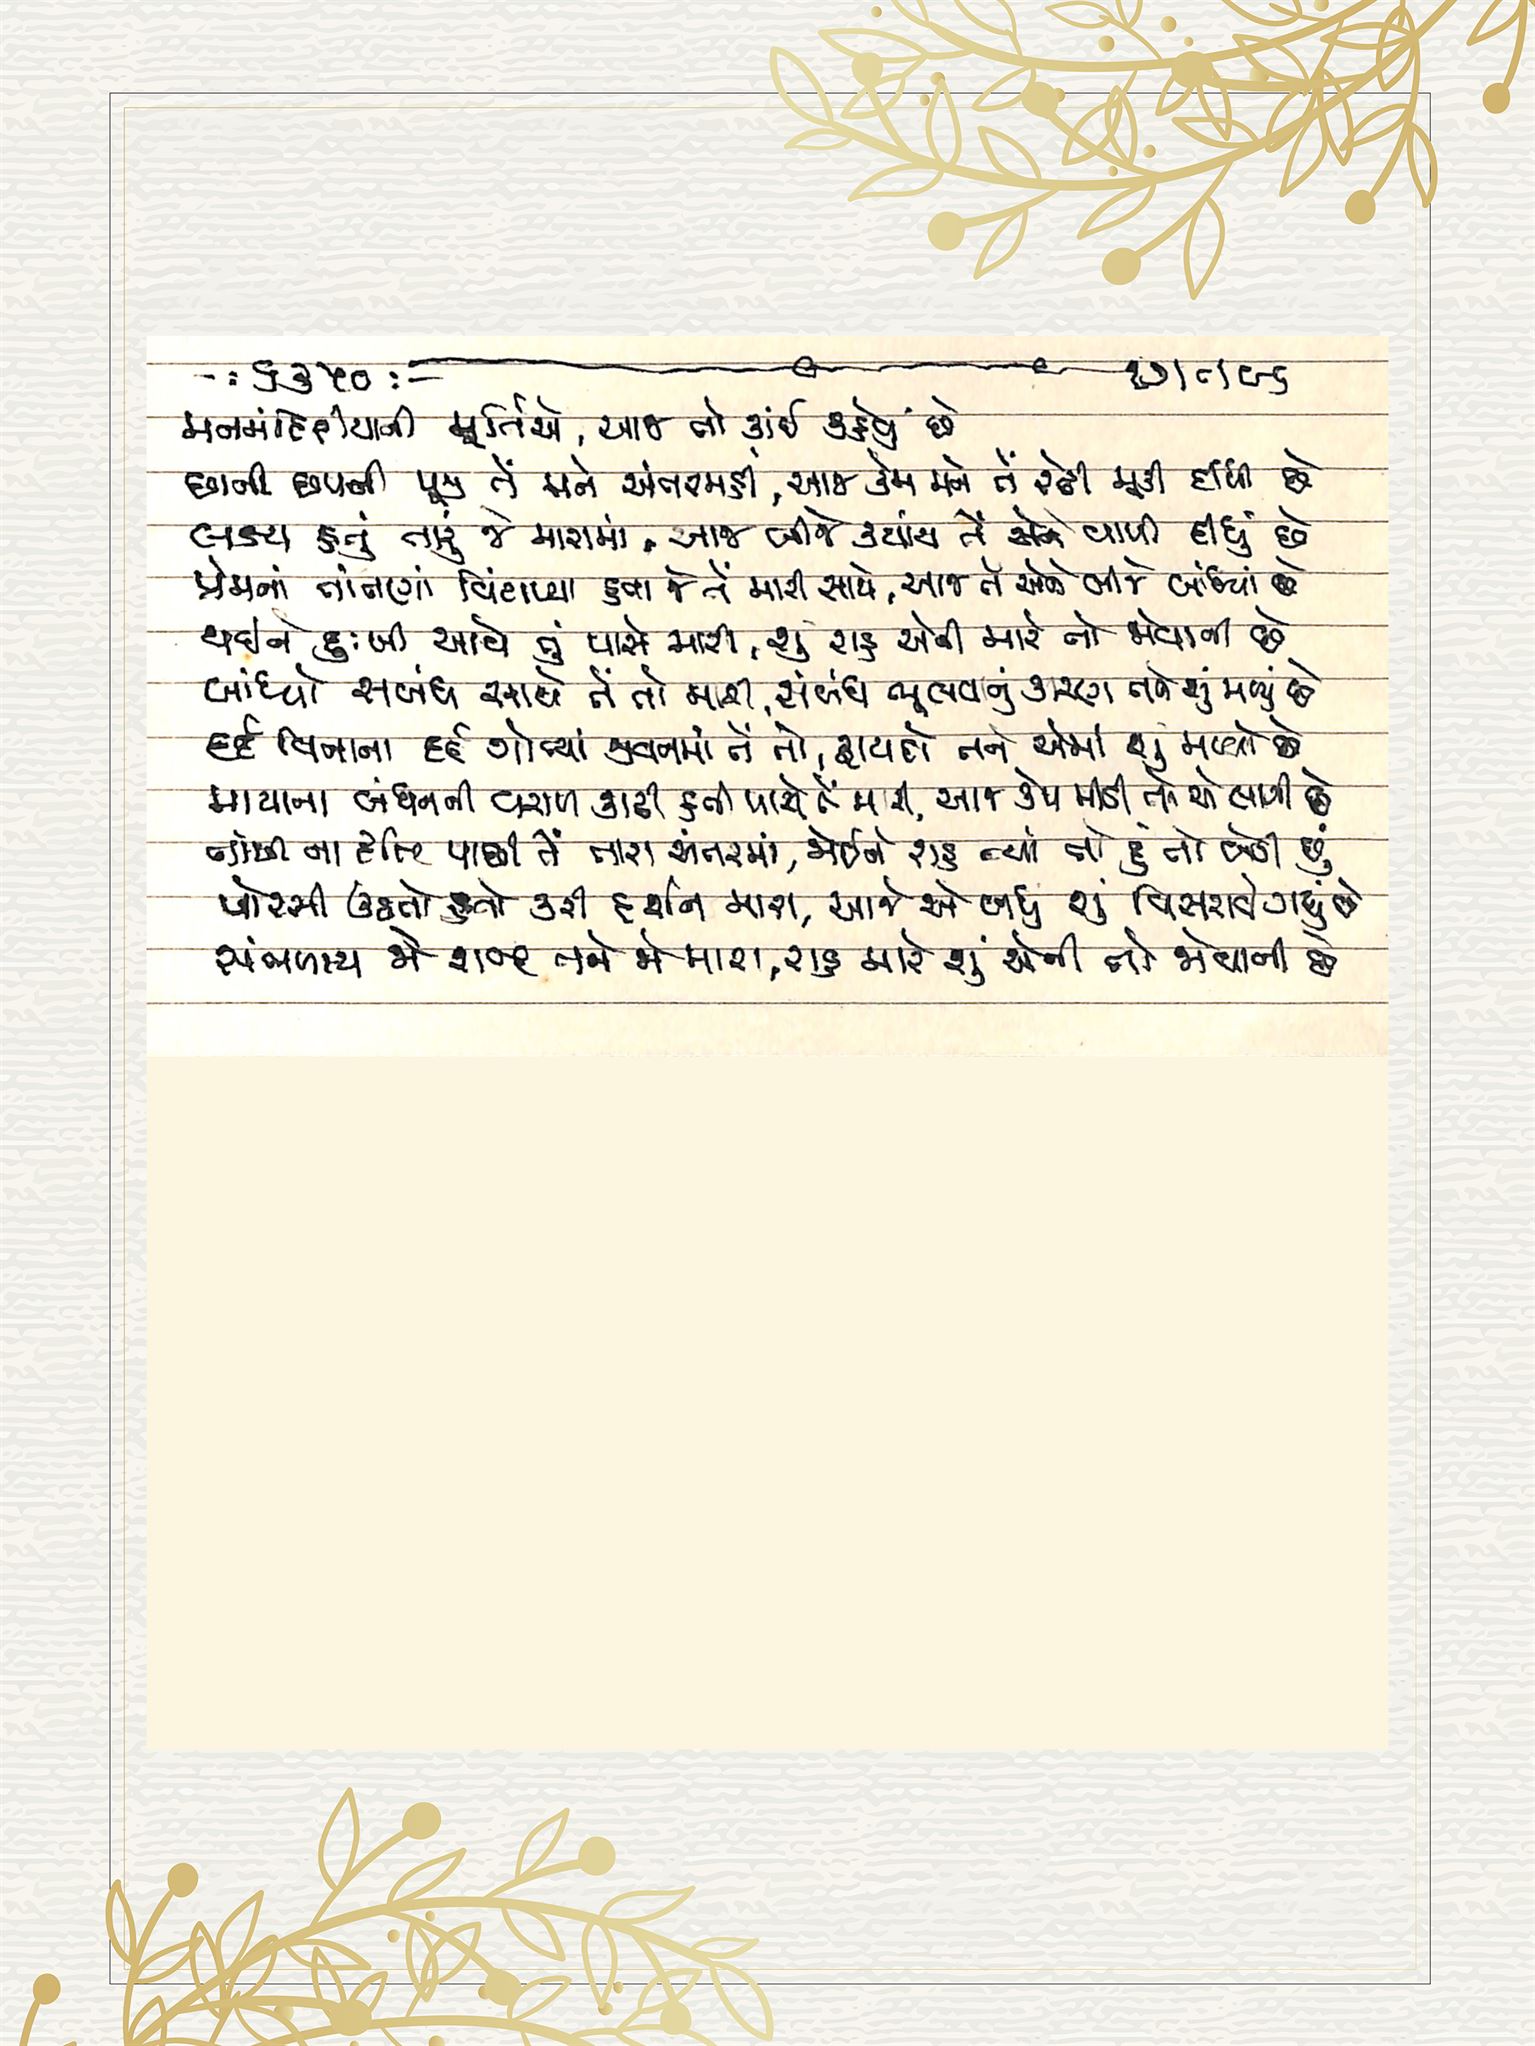 -: ૬૩૫૦ :-
મનમંદિરીયાની મૂર્તિએ, આજ તો કાંઈ કહેવું છે
છાની છપની પૂજી તેં મને અંતરમહીં, આજ કેમ મને તેં રઢી મૂકી દીધી છે
લક્ષ્ય હતું તારું જે મારામાં, આજ બીજે ક્યાંય તેં એને વાળી દીધું છે
પ્રેમનાં તાંતણાં વિંટાળ્યા હતા જે તેં મારી સાથે, આજ તેં એને બીજે બાંધ્યાં છે
થઈને દુઃખી આવે તું પાસે મારી, શું રાહ એની મારે તો જોવાની છે
બાંધ્યો સબંધ સાથે તેં તો મારી, સંબંધ ભૂલવાનું કારણ તને શું મળ્યું છે
દર્દ વિનાના દર્દ ગોત્યાં જીવનમાં તેં તો, ફાયદો તને એમાં શું મળ્યો છે
માયાના બંધનની વરાળ કાઢી હતી પાસે તેં મારી, આજ કેમ મીઠી તને એ લાગી છે
પાછી તેં તારા અંતરમાં, જોઈને રાહ ત્યાં તો હું તો બેઠી છું
હતો કરી દર્શન મારા, આજે એ બધું શું વિસરાઈ ગયું છે
શબ્દ તને જે મારા, રાહ મારે શું એની તો જોવાની છે